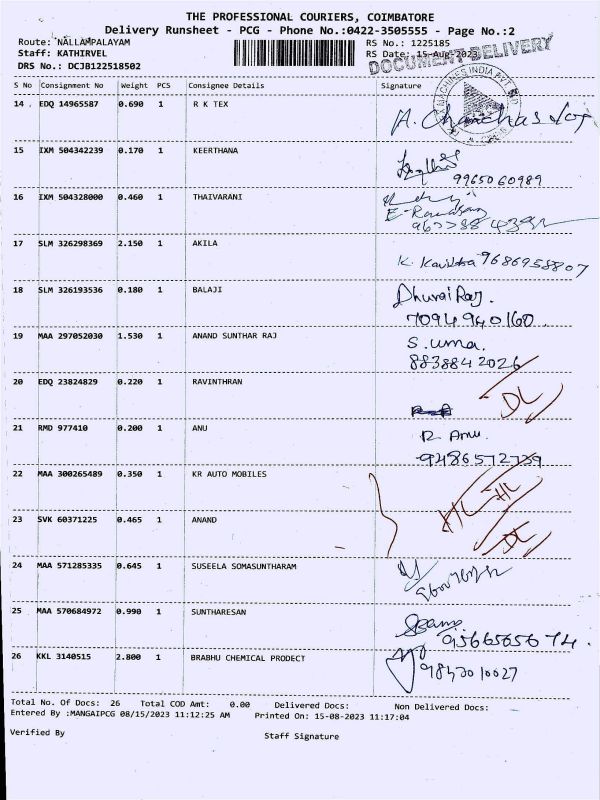 THE PROFESSIONAL COURIERS, COIMBATORE
Delivery Runsheet - PCG - Phone No.:0422-3505555 - Page No.:2
Route: NALLAMPALAYAM RS No.: 1225185
Staff: KATHIRVEL RS Date: 15-Aug-2023
DRS No.: DCJB122518502 DOCUMENT DELIVERY
S No Consignment No Weight PCS Consignee Details Signature
14 EDQ 14965587 0.690 1 R K TEX
15 IXM 504342239 0.170 1 KEERTHANA
9965060989
16 IXM 504328000 0.460 1 THAIVARANI
17 SLM 326298369 2.150 1 AKILA K. Kavitha 9686958807
18 SLM 326193536 0.180 1 BALAJI Dhurai Raj.
7094940160
19 MAA 297052030 1.530 1 ANAND SUNTHAR RAJ S. uma.
8838842026
20 EDQ 23824829 0.220 1 RAVINTHRAN DL
21 RMD 977410 0.200 1 ANU R. Anu.
9486572739
22 MAA 300265489 0.350 1 KR AUTO MOBILES
23 SVK 60371225 0.465 1 ANAND DL
24 MAA 571285335 0.645 1 SUSEELA SOMASUNTHARAM
25 MAA 570684972 0.990 1 SUNTHARESAN
9566565674.
26 KKL 3140515 2.800 1 BRABHU CHEMICAL PRODECT
Total No. Of Docs: 26 Total COD Amt: 0.00 Delivered Docs: Non Delivered Docs:
Entered By :MANGAIPCG 08/15/2023 11:12:25 AM Printed On: 15-08-2023 11:17:04
Verified By Staff Signature